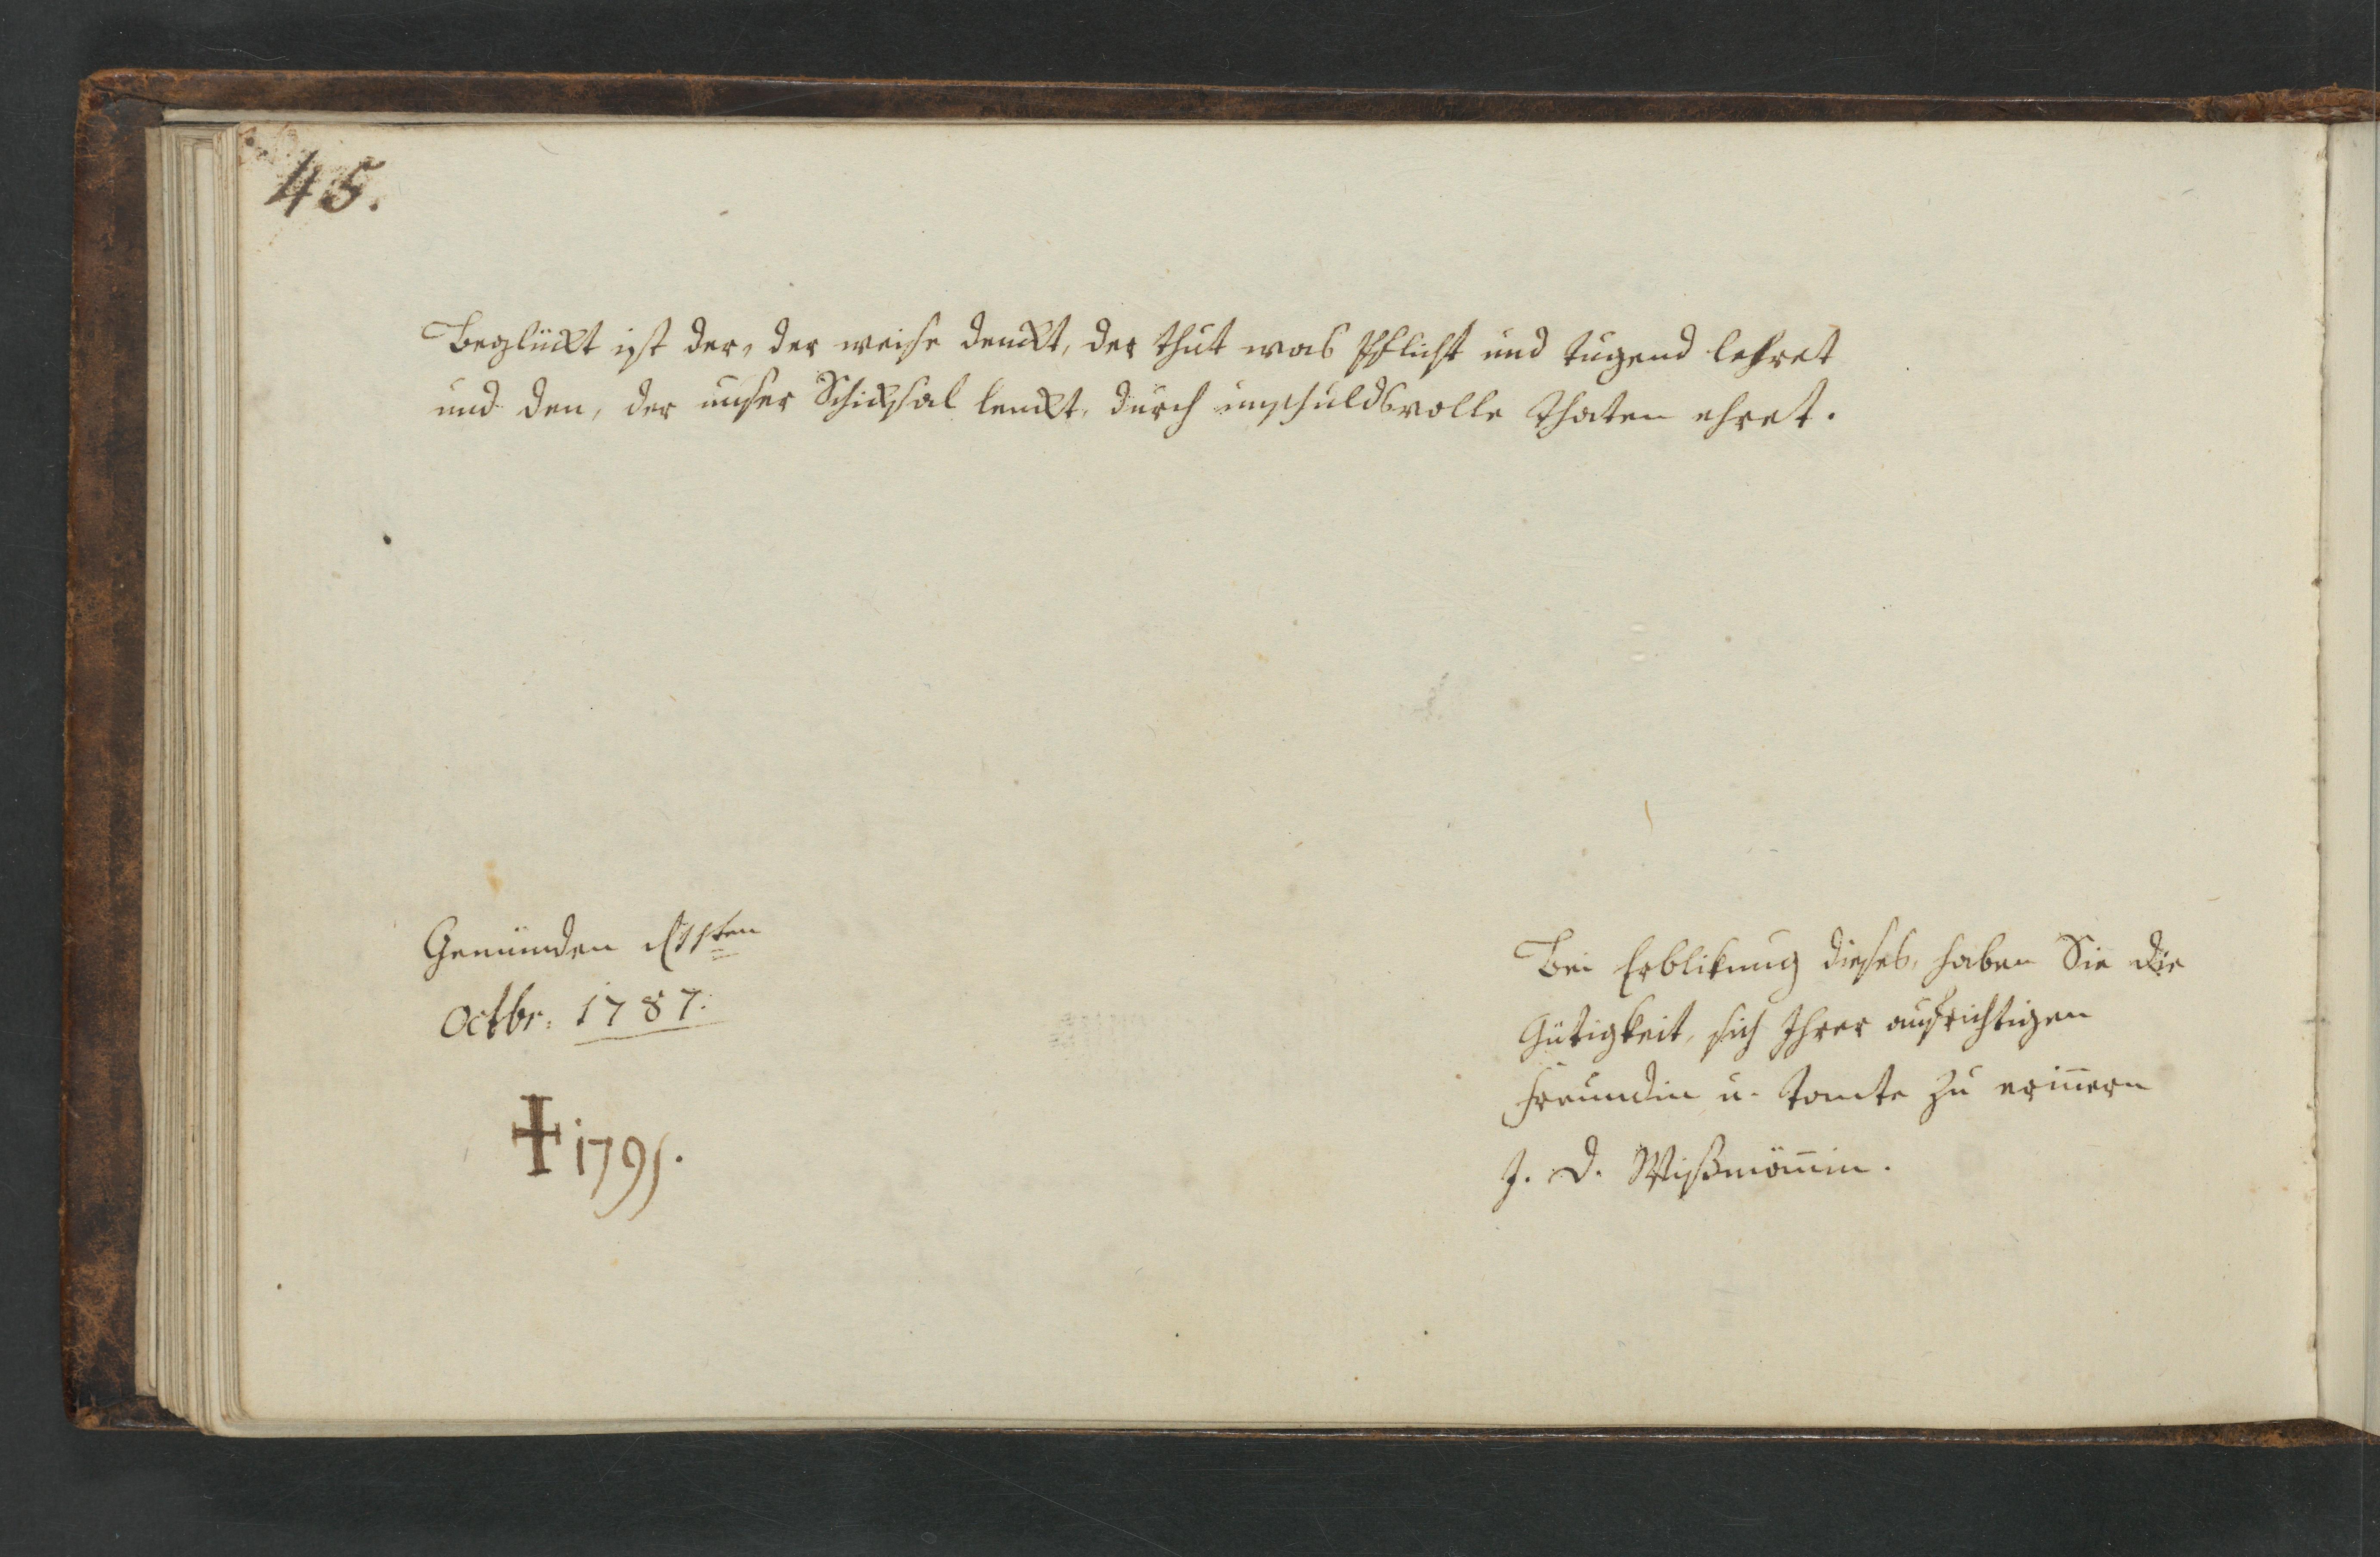 45.
Beglückt ist der, der weise denckt, der thut was Pflicht und tugend lehret
und den, der unser Schicksal lenckt, durch unschuldsvolle thaten ehret.
Gemünden d 11ten
Octbr: 1787.
✝ 1795.
Bei Erblikung dieses, haben Sie die
Gütigkeit, sich Ihrer aufrichtigen
Freundin u. tante zu erin̄ern
J. D. Wißmän̄in.